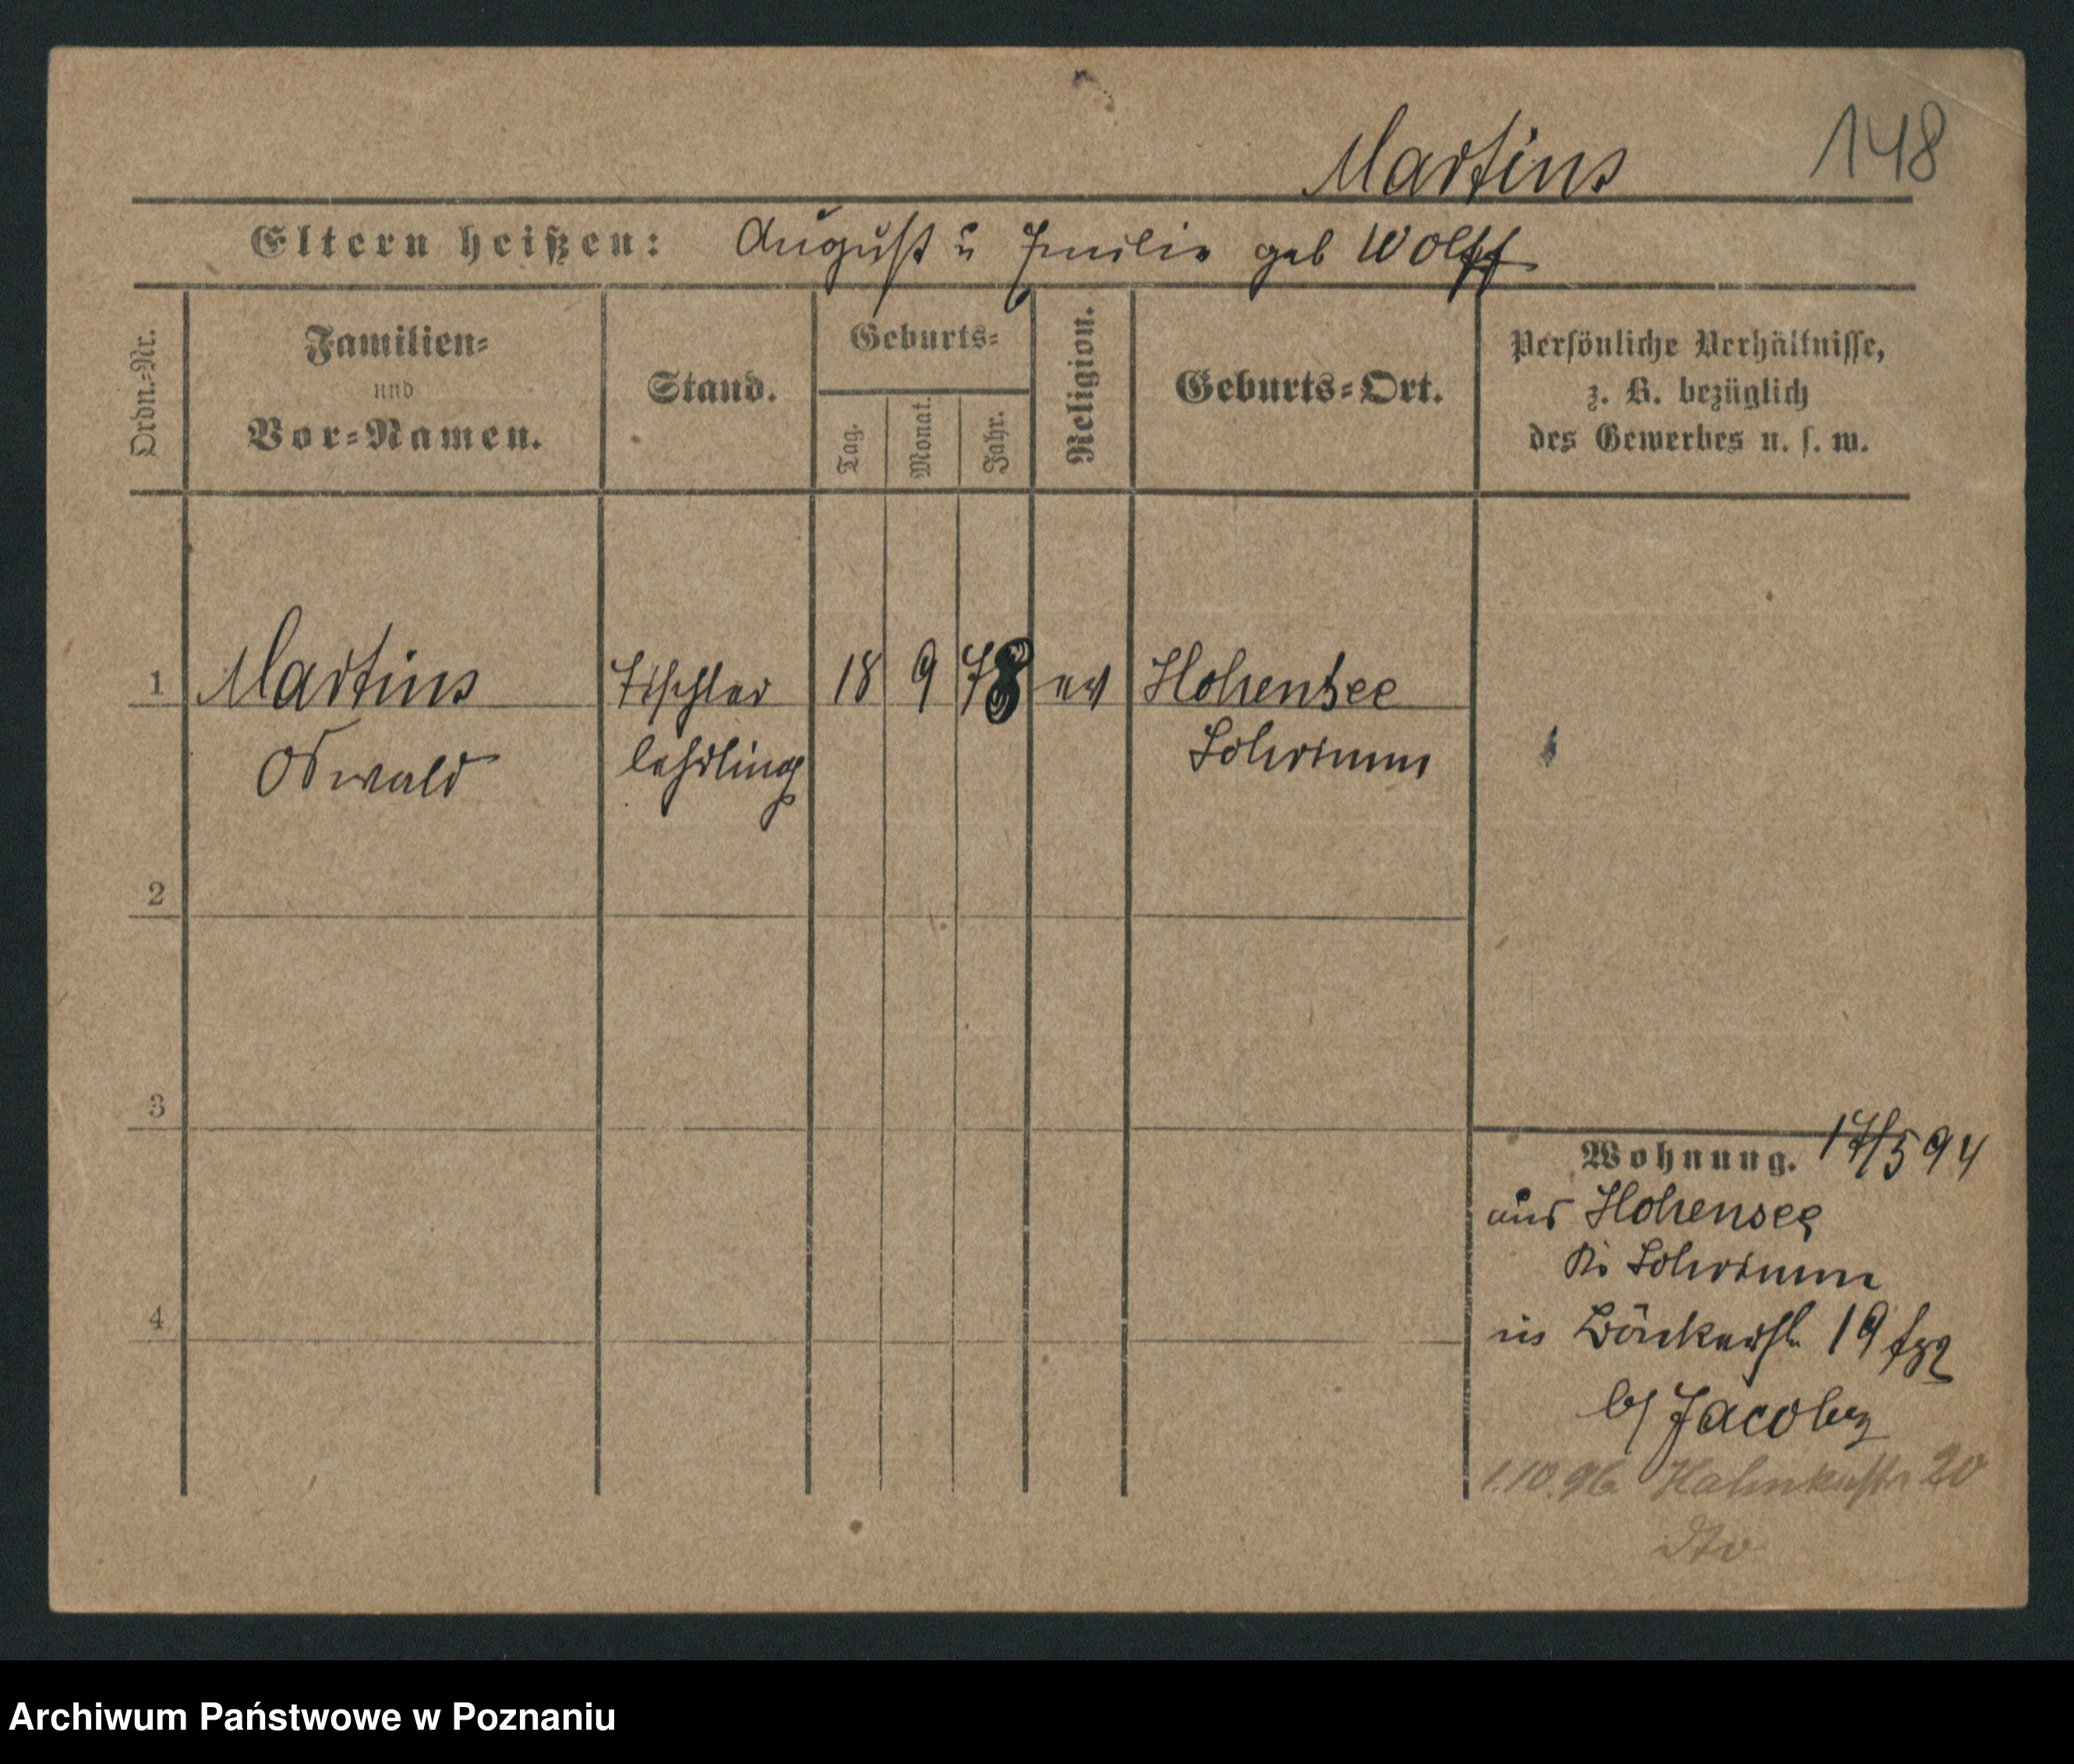 148
Martins
Eltern heißen: August u Emilie geb Wolff
Ordn.-Nr.
Familien-
und
Vor-Namen.
Stand.
Geburts-
Tag.
Monat.
Jahr.
Religion.
Geburts-Ort.
Persönliche Verhältnisse,
z. B. bezüglich
des Gewerbes u. s. w.
1 Martins Tischler 18 9 78 ev Hohensee
Oswald lehrling Schrimm
2
3
4
Wohnung. 17/5 94
aus Hohensee
Kr Schrimm
in Bäckerstr 19
b/ Jacoby
1.10.96 20
dto
Archiwum Państwowe w Poznaniu